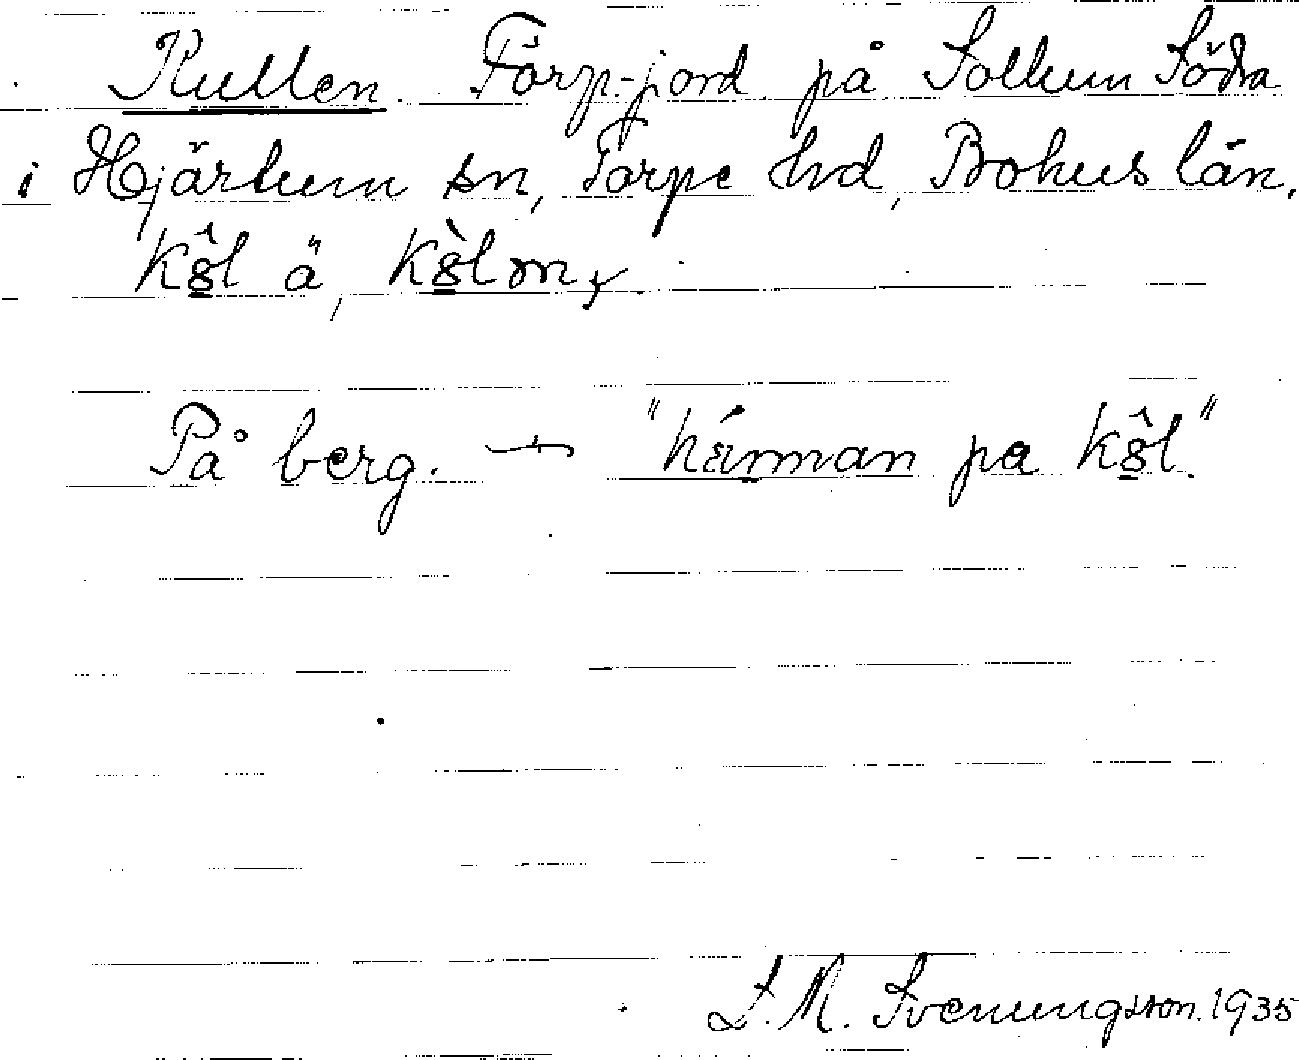 Kullen. Torp-jord på Solhem Södra
i Hjärtum sn, Torpe hd, Bohus län.
Kŏ̭l ä,
På berg. — "hárman pa
S. M. Svenungsson. 1935